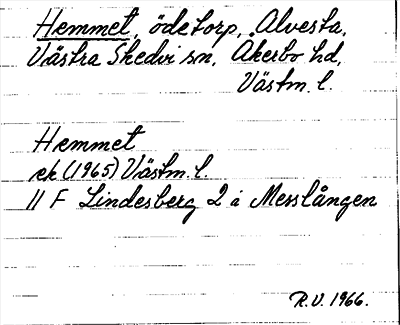 Hemmet, ödetorp, Alvesta,
Västra Skedvi sn, Åkerbo hd,
Västm. l.
Hemmet
ek (1965) Västm. l.
11 F Lindesberg 2 å Messlången
R.V. 1966.